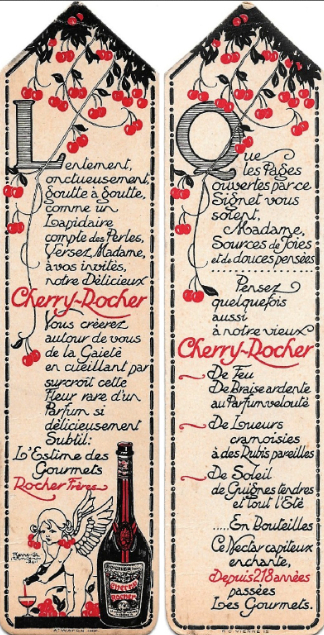 Lentement,
onctueusement,
goutte à goutte,
comme un
Lapidaire
compte des Perles,
Versez, Madame,
à vos invités,
notre Délicieux
Cherry-Rocher
Vous créerez
autour de vous
de la Gaieté
en cueillant par
surcroit cette
Fleur rare d'un
Parfum si
délicieusement
Subtil:
L'Estime des
Gourmets
Rocher Frères
CHERRY
ROCHER
Que
les Pages
ouvertes par ce
Signet vous
soient,
Madame,
Sources de Joies
et de douces pensées
Pensez
quelquefois
aussi
à notre vieux
Cherry-Rocher
De Feu
De Braise ardente
au Parfum velouté
De Lueurs
cramoisies
à des Rubis pareilles
De Soleil
de Guignes tendres
et tout l'Eté
.....En Bouteilles
Ce Nectar capiteux
enchante,
Depuis 218 années
passées
Les Gourmets.